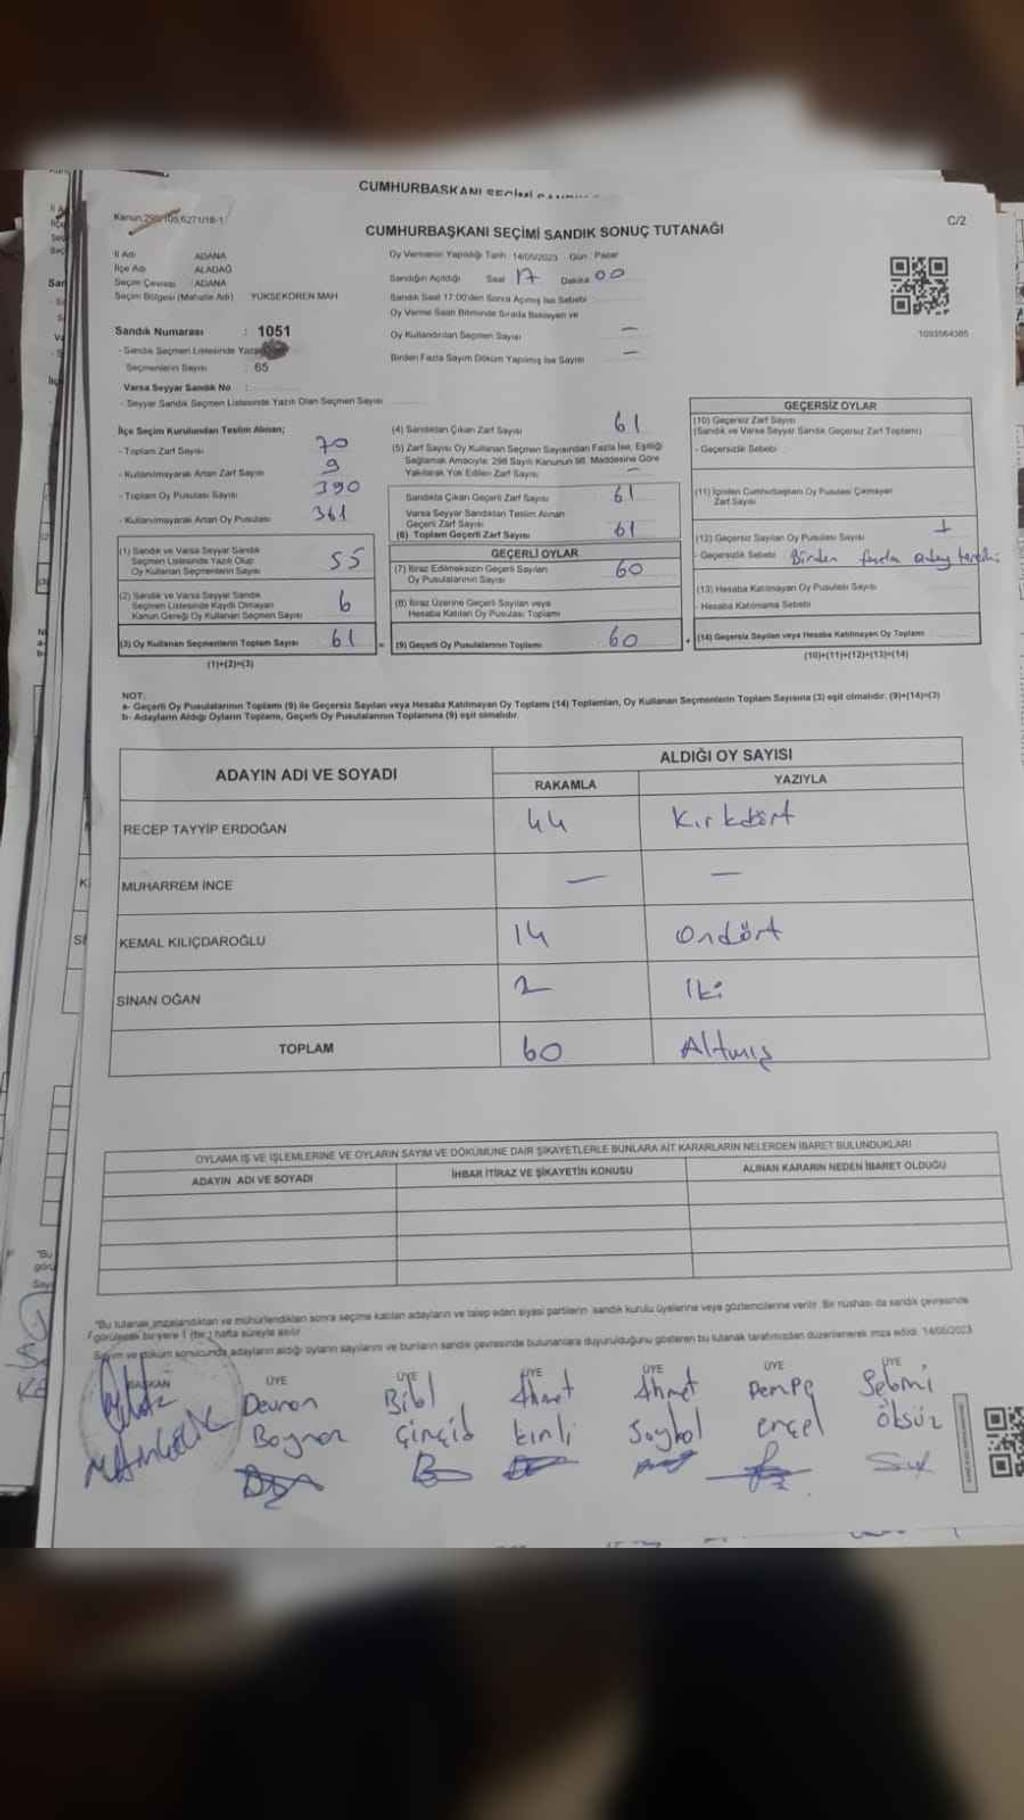 CUMHURBAŞKANI SEÇİMİ
Kanun 298/105,6271/18-1
C/2
CUMHURBAŞKANI SEÇİMİ SANDIK SONUÇ TUTANAĞI
İl Adı ADANA
İlçe Adı ALADAĞ
Seçim Çevresi ADANA
Seçim Bölgesi (Mahalle Adı) YÜKSEKÖREN MAH
Sandık Numarası : 1051
- Sandık Seçmen Listesinde
Seçmenlerin Sayısı : 65
Varsa Seyyar Sandık No :
- Seyyar Sandık Seçmen Listesinde Yazılı Olan Seçmen Sayısı
Oy Vermenin Yapıldığı Tarih 14/05/2023 Gün : Pazar
Sandığın Açıldığı Saat 17 Dakika 00
Sandık Saat 17:00'den Sonra Açılmış İse Sebebi
Oy Verme Saati Bitiminde Sırada Bekleyen ve
Oy Kullandırılan Seçmen Sayısı —
Birden Fazla Sayım Döküm Yapılmış İse Sayısı —
1093564385
İlçe Seçim Kurulundan Teslim Alınan;
- Toplam Zarf Sayısı 70
- Kullanılmayarak Artan Zarf Sayısı 9
- Toplam Oy Pusulası Sayısı 390
- Kullanılmayarak Artan Oy Pusulası 361
(1) Sandık ve Varsa Seyyar Sandık
Seçmen Listesinde Yazılı Olup
Oy Kullanan Seçmenlerin Sayısı 55
(2) Sandık ve Varsa Seyyar Sandık
Seçmen Listesinde Kaydı Olmayan
Kanun Gereği Oy Kullanan Seçmen Sayısı 6
(3) Oy Kullanan Seçmenlerin Toplam Sayısı 61
(1)+(2)=(3)
(4) Sandıktan Çıkan Zarf Sayısı 61
(5) Zarf Sayısı Oy Kullanan Seçmen Sayısından Fazla İse, Eşitliği
Sağlamak Amacıyla; 298 Sayılı Kanunun 98. Maddesine Göre
Yakılarak Yok Edilen Zarf Sayısı —
Sandıkta Çıkan Geçerli Zarf Sayısı 61
Varsa Seyyar Sandıktan Teslim Alınan
Geçerli Zarf Sayısı
(6) Toplam Geçerli Zarf Sayısı 61
GEÇERLİ OYLAR
(7) İtiraz Edilmeksizin Geçerli Sayılan
Oy Pusulalarının Sayısı 60
(8) İtiraz Üzerine Geçerli Sayılan veya
Hesaba Katılan Oy Pusulası Toplamı
= (9) Geçerli Oy Pusulalarının Toplamı 60
GEÇERSİZ OYLAR
(10) Geçersiz Zarf Sayısı
(Sandık ve Varsa Seyyar Sandık Geçersiz Zarf Toplamı)
- Geçersizlik Sebebi
(11) İçinden Cumhurbaşkanı Oy Pusulası Çıkmayan
Zarf Sayısı
(12) Geçersiz Sayılan Oy Pusulası Sayısı 1
- Geçersizlik Sebebi Birden fazla aday tercihi
(13) Hesaba Katılmayan Oy Pusulası Sayısı
- Hesaba Katılmama Sebebi
+ (14) Geçersiz Sayılan veya Hesaba Katılmayan Oy Toplamı
(10)+(11)+(12)+(13)=(14)
NOT:
a- Geçerli Oy Pusulalarının Toplamı (9) ile Geçersiz Sayılan veya Hesaba Katılmayan Oy Toplamı (14) Toplamları, Oy Kullanan Seçmenlerin Toplam Sayısına (3) eşit olmalıdır. (9)+(14)=(3)
b- Adayların Aldığı Oyların Toplamı, Geçerli Oy Pusulalarının Toplamına (9) eşit olmalıdır.
ADAYIN ADI VE SOYADI
ALDIĞI OY SAYISI
RAKAMLA YAZIYLA
RECEP TAYYİP ERDOĞAN 44 Kırkdört
MUHARREM İNCE — —
KEMAL KILIÇDAROĞLU 14 Ondört
SİNAN OĞAN 2 İki
TOPLAM 60 Altmış
OYLAMA İŞ VE İŞLEMLERİNE VE OYLARIN SAYIM VE DÖKÜMÜNE DAİR ŞİKAYETLERLE BUNLARA AİT KARARLARIN NELERDEN İBARET BULUNDUKLARI
ADAYIN ADI VE SOYADI İHBAR İTİRAZ VE ŞİKAYETİN KONUSU ALINAN KARARIN NEDEN İBARET OLDUĞU
"Bu tutanak imzalandıktan ve mühürlendikten sonra seçime katılan adayların ve talep eden siyasi partilerin sandık kurulu üyelerine veya gözlemcilerine verilir. Bir nüshası da sandık çevresinde
görülecek bir yere 1 (bir) hafta süreyle asılır.
Sayım ve döküm sonucunda adayların aldığı oyların sayılarını ve bunların sandık çevresinde bulunanlara duyurulduğunu gösteren bu tutanak tarafımızdan düzenlenerek imza edildi. 14/05/2023
BAŞKAN ÜYE ÜYE ÜYE ÜYE ÜYE ÜYE
Ahmet Ahmet
kırlı
öksüz